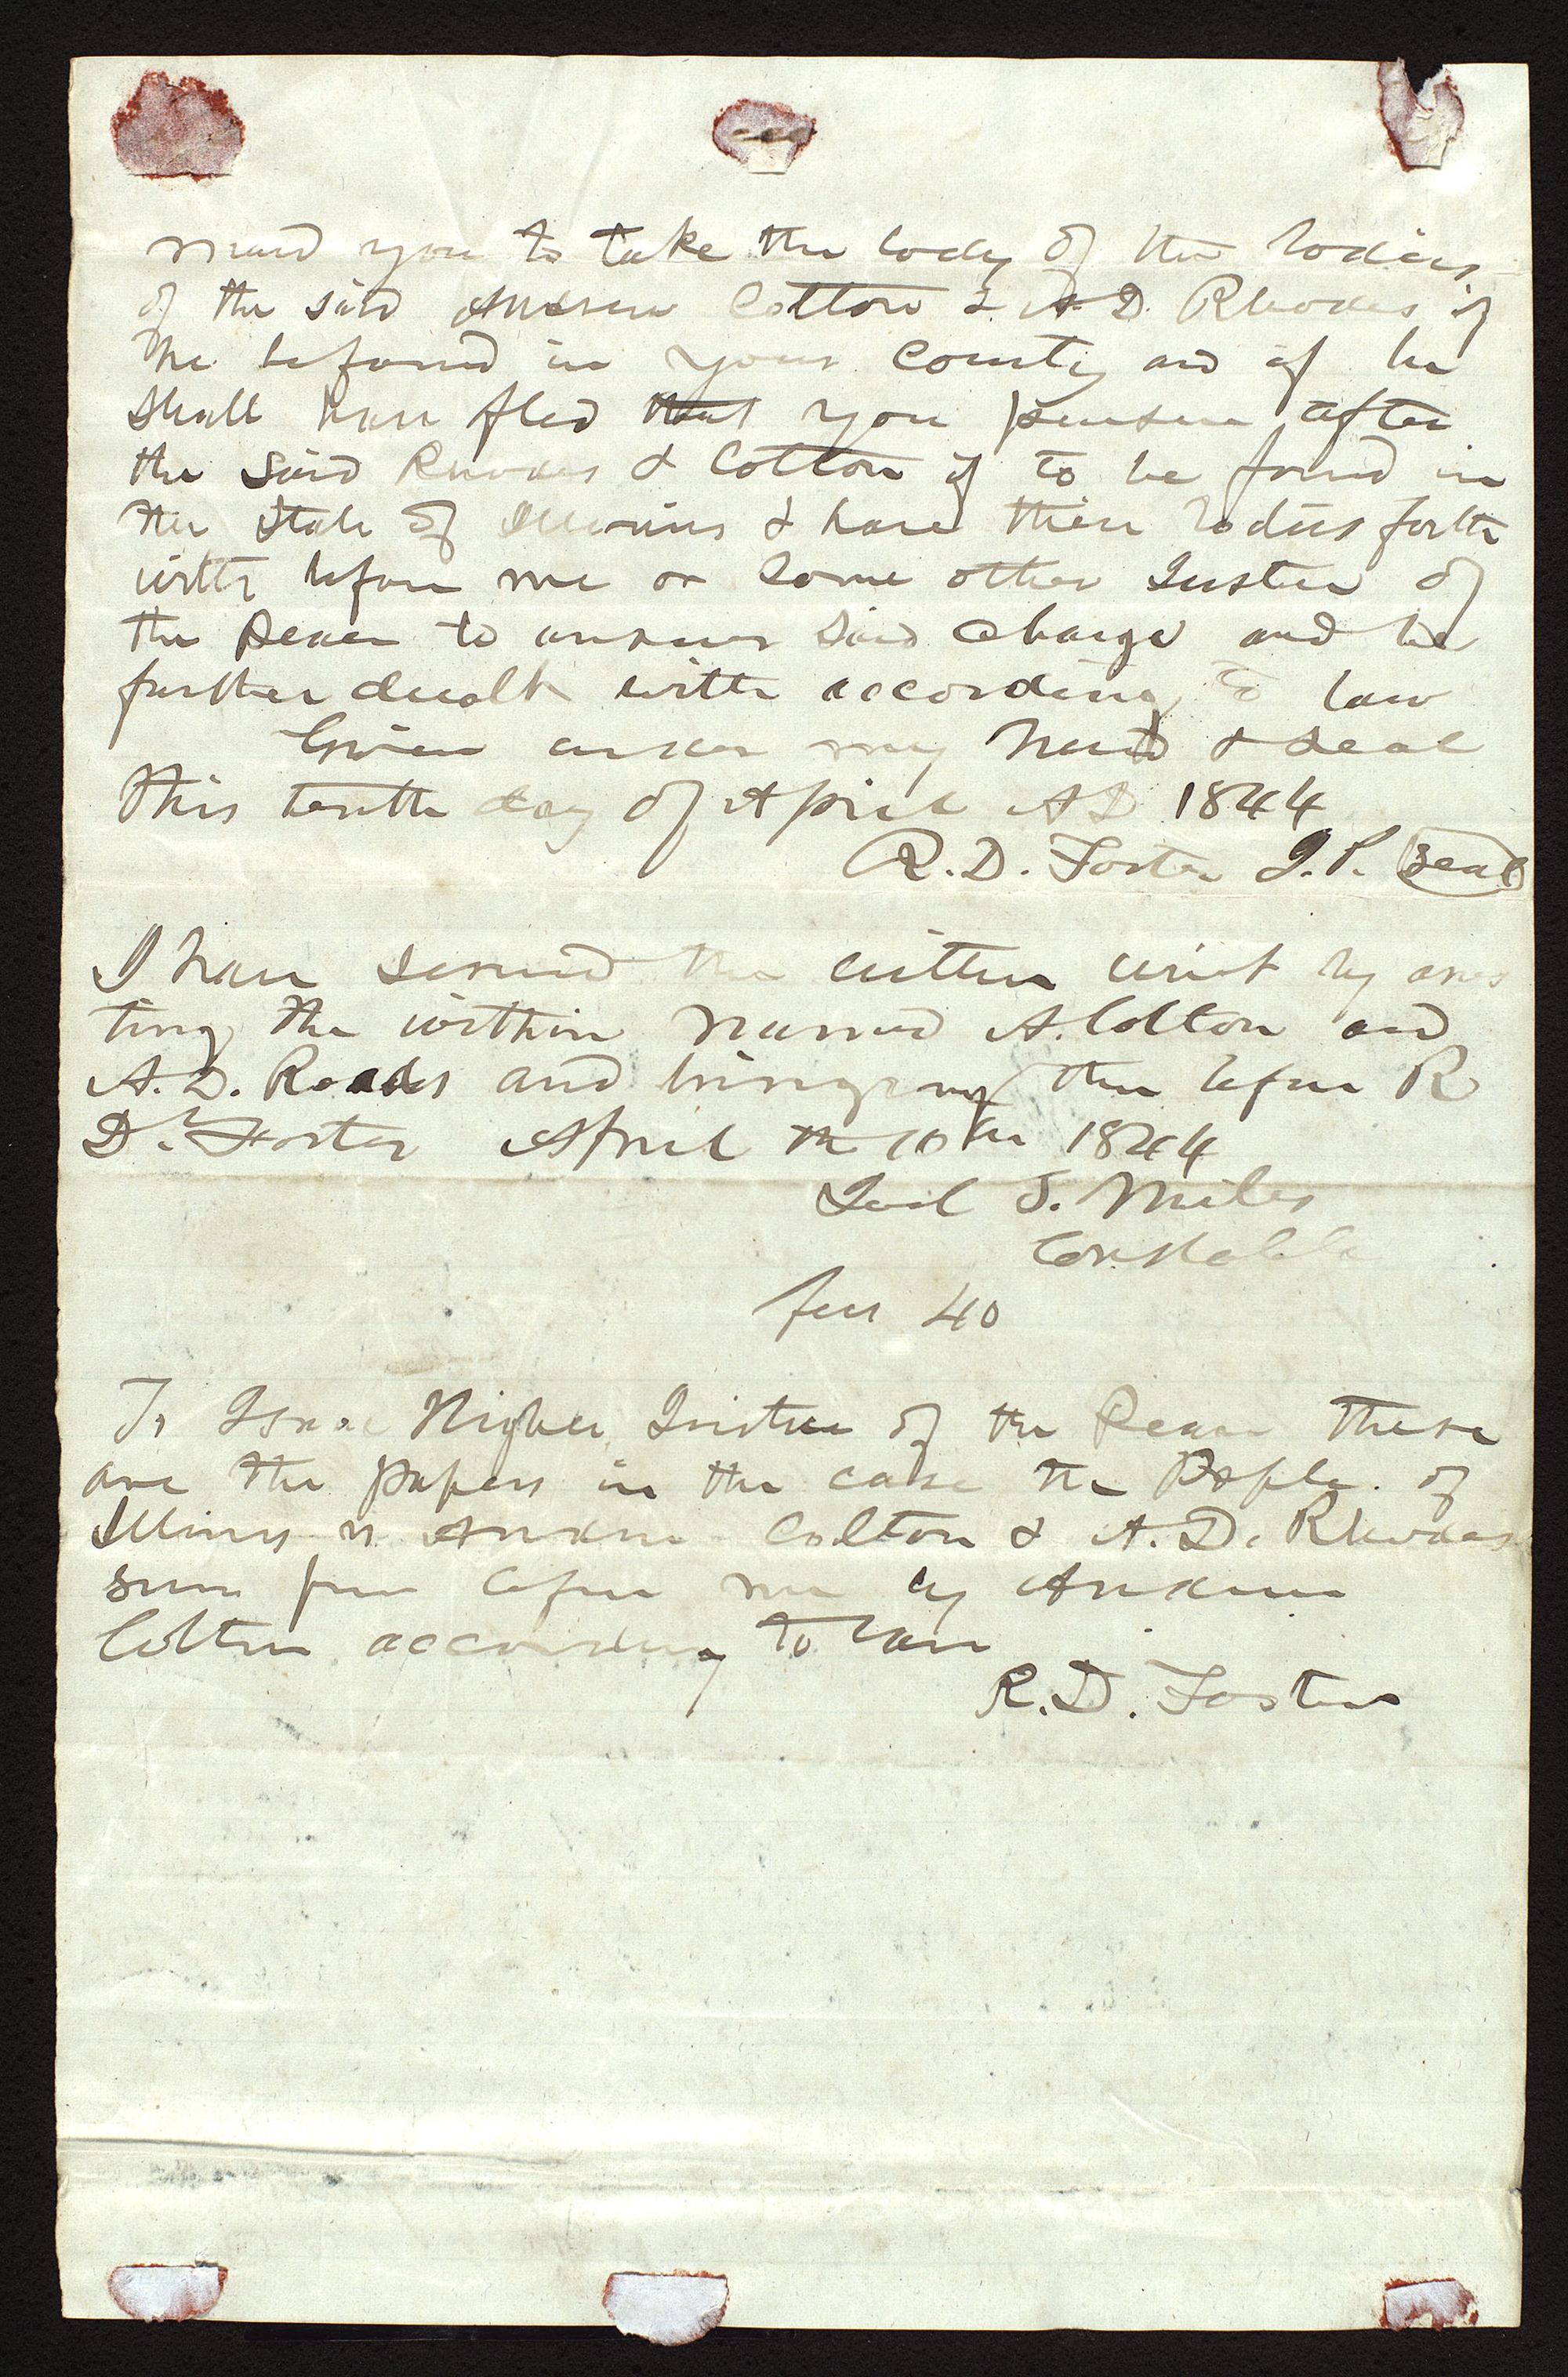 mand you to take the body of the bodies
of the said Andrew Colton & A D. Rhodes if
he be found in your County and if he
shall have fled that you pursue after
the said Rhodes & Colton if to be found in
the State of Illinois & have their bodies forth
with before me or some other Justice of
the Peace to answer said charge and be
further dealt with according to law
Given under my hand & seal
this tenth day of April AD 1844
R. D. Foster J. P. Seal
I have served the within writ by arres
ting the within named A. Colton and
A. D. Roads and bringing them before R
D. Foster April the 10th 1844
Joel S. Miles
Constable
fees 40
To Isaac Higbee Justice of the Peace These
are the papers in the case the People of
Illinois vs Andrew Colton & A. D. Rhodes
before me by Andrew
Colton according to law
R. D. Foster